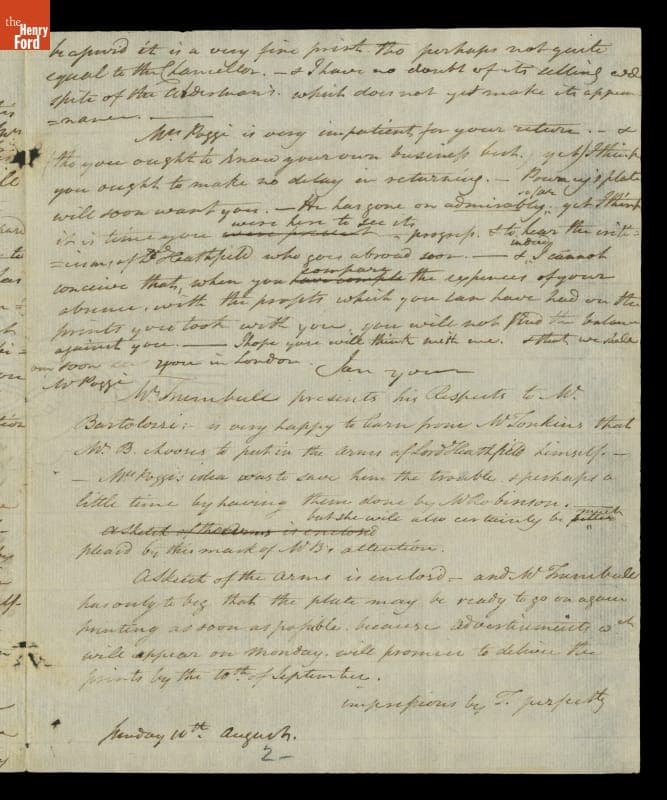 the
Henry
Ford
it is a very fine print. tho perhaps not quite
equal to the Chancellor. — & I have no doubt of its selling
spite of the Alderman's. which does not yet make its appea
=rance. —
Mrs Poggi is very impatient for your return. — &
tho you ought to know your own business best, yet I think
you ought to make no delay in returning. — plate
will soon want you. — He has gone on admirably so far, yet I think
it is time you were present were here to see its progress. & to hear the crit=
=icisms of Ld Heathfield who goes abroad soon. — & indeed I cannot
conceive that, when you have comple compare the expences of your
absence, with the profits which you can have had on the
prints you took with you, you will not find the balance
against you. — I hope you will think with me. & that we shall
soon see you in London. I am your
Mr Poggi
Mr Trumbull presents his Respects to Mr.
Bartolozzi: — is very happy to learn from Mr Tomkins that
Mr. B. chooses to put in the arms of Lord Heathfield himself. —
— Mrs Poggi's idea was to save him the trouble & perhaps a
little time by having them done by Mr Robinson.
but she will also certainly be much
a sketch of the arms is enclosed
pleas'd by this mark of Mr B's attention.
A sketch of the arms is enclosd — and Mr Trumbull
has only to beg that the plate may be ready to go on again
printing as soon as possible. because advertisements wch
will appear on monday. will promise to deliver the
prints by the 10th of September.
impressions by T. perfectly
Sunday 10th August.
2 —